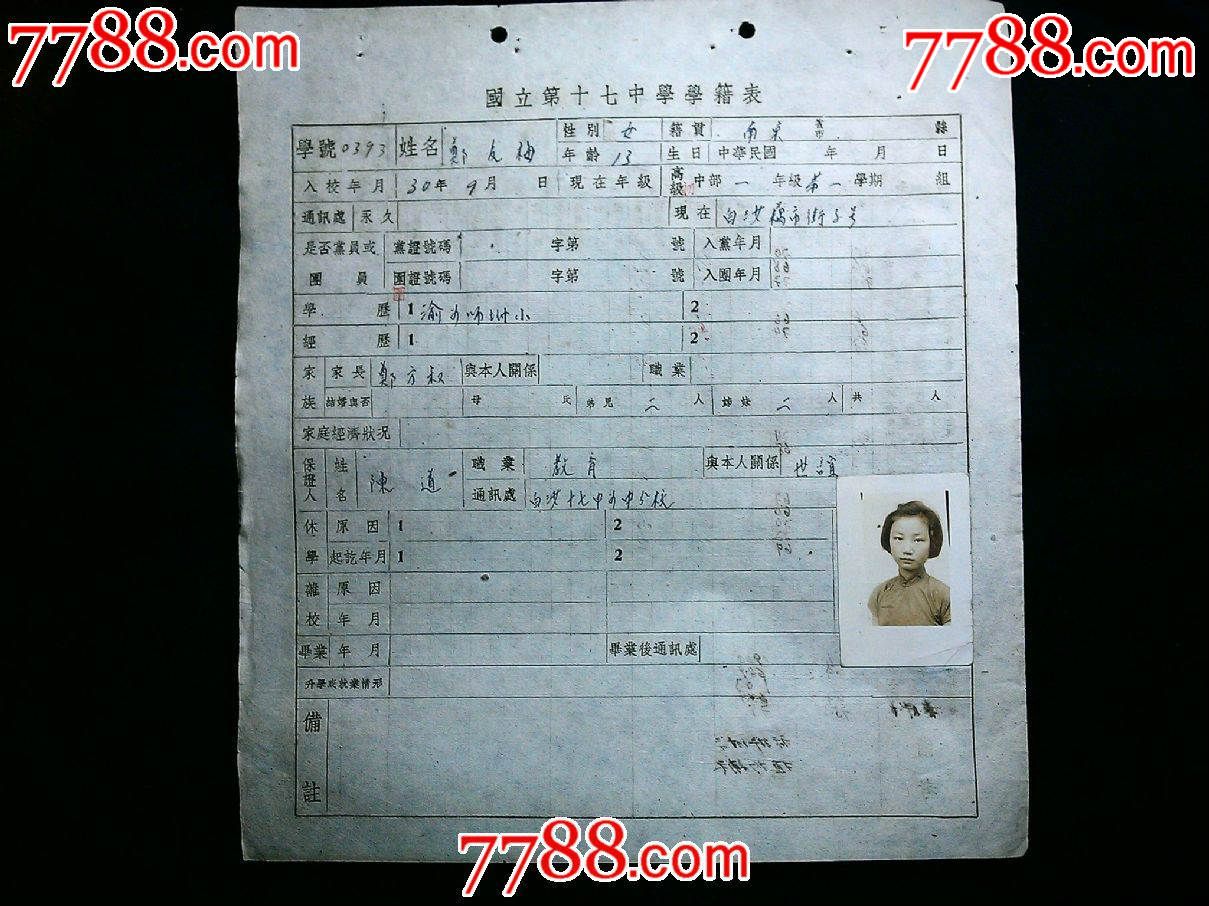 7788.com
7788.com
國立第十七中學學籍表
學號 0393 姓名 鄭 梅 性別 女 籍貫 南京 省市 縣
年齡 13 生日 中華民國 年 月 日
入校年月 30年9月 日 現在年級 高級 中部 一 年級 第一 學期 組
通訊處 永久 現在 白沙 市街 号
是否黨員或 黨證號碼 字第 號 入黨年月
團員 團證號碼 字第 號 入團年月
學歷 1 渝女师附小 2
經歷 1 2
家族 家長 鄭方叔 與本人關係 職業
結婚與否 母 氏 弟兄 二 人 姊妹 二 人 共 人
家庭經濟狀況
保證人 姓名 陳道一 職業 教育 與本人關係 世誼
通訊處 白沙十七中女中分校
休學 原因 1 2
起訖年月 1 2
離校 原因
年月
畢業年月 畢業後通訊處
升學或就業情形
備註
7788.com